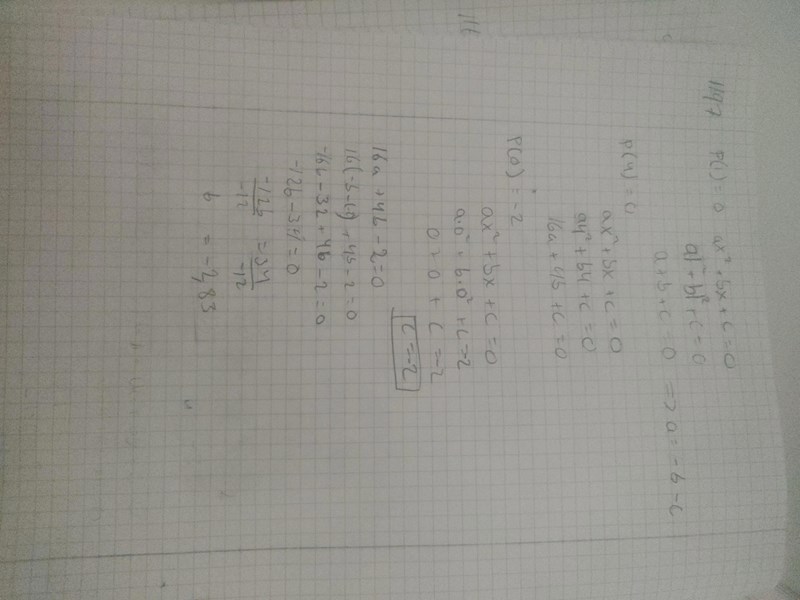 1147 P(1) = 0 ax² + bx + c = 0
a1² + b1 + c = 0
a + b + c = 0 => a = -b - c
P(4) = 0
ax² + bx + c = 0
a4² + b4 + c = 0
16a + 4b + c = 0
P(0) = -2
ax² + bx + c = 0
a.0² + b.0² + c = -2
0 + 0 + c = -2
c = -2
16a + 4b - 2 = 0
+ 4b - 2 = 0
-16b - 32 + 4b - 2 = 0
-12b - 34 = 0
-12b = 34
-12 -12
b = -2,83